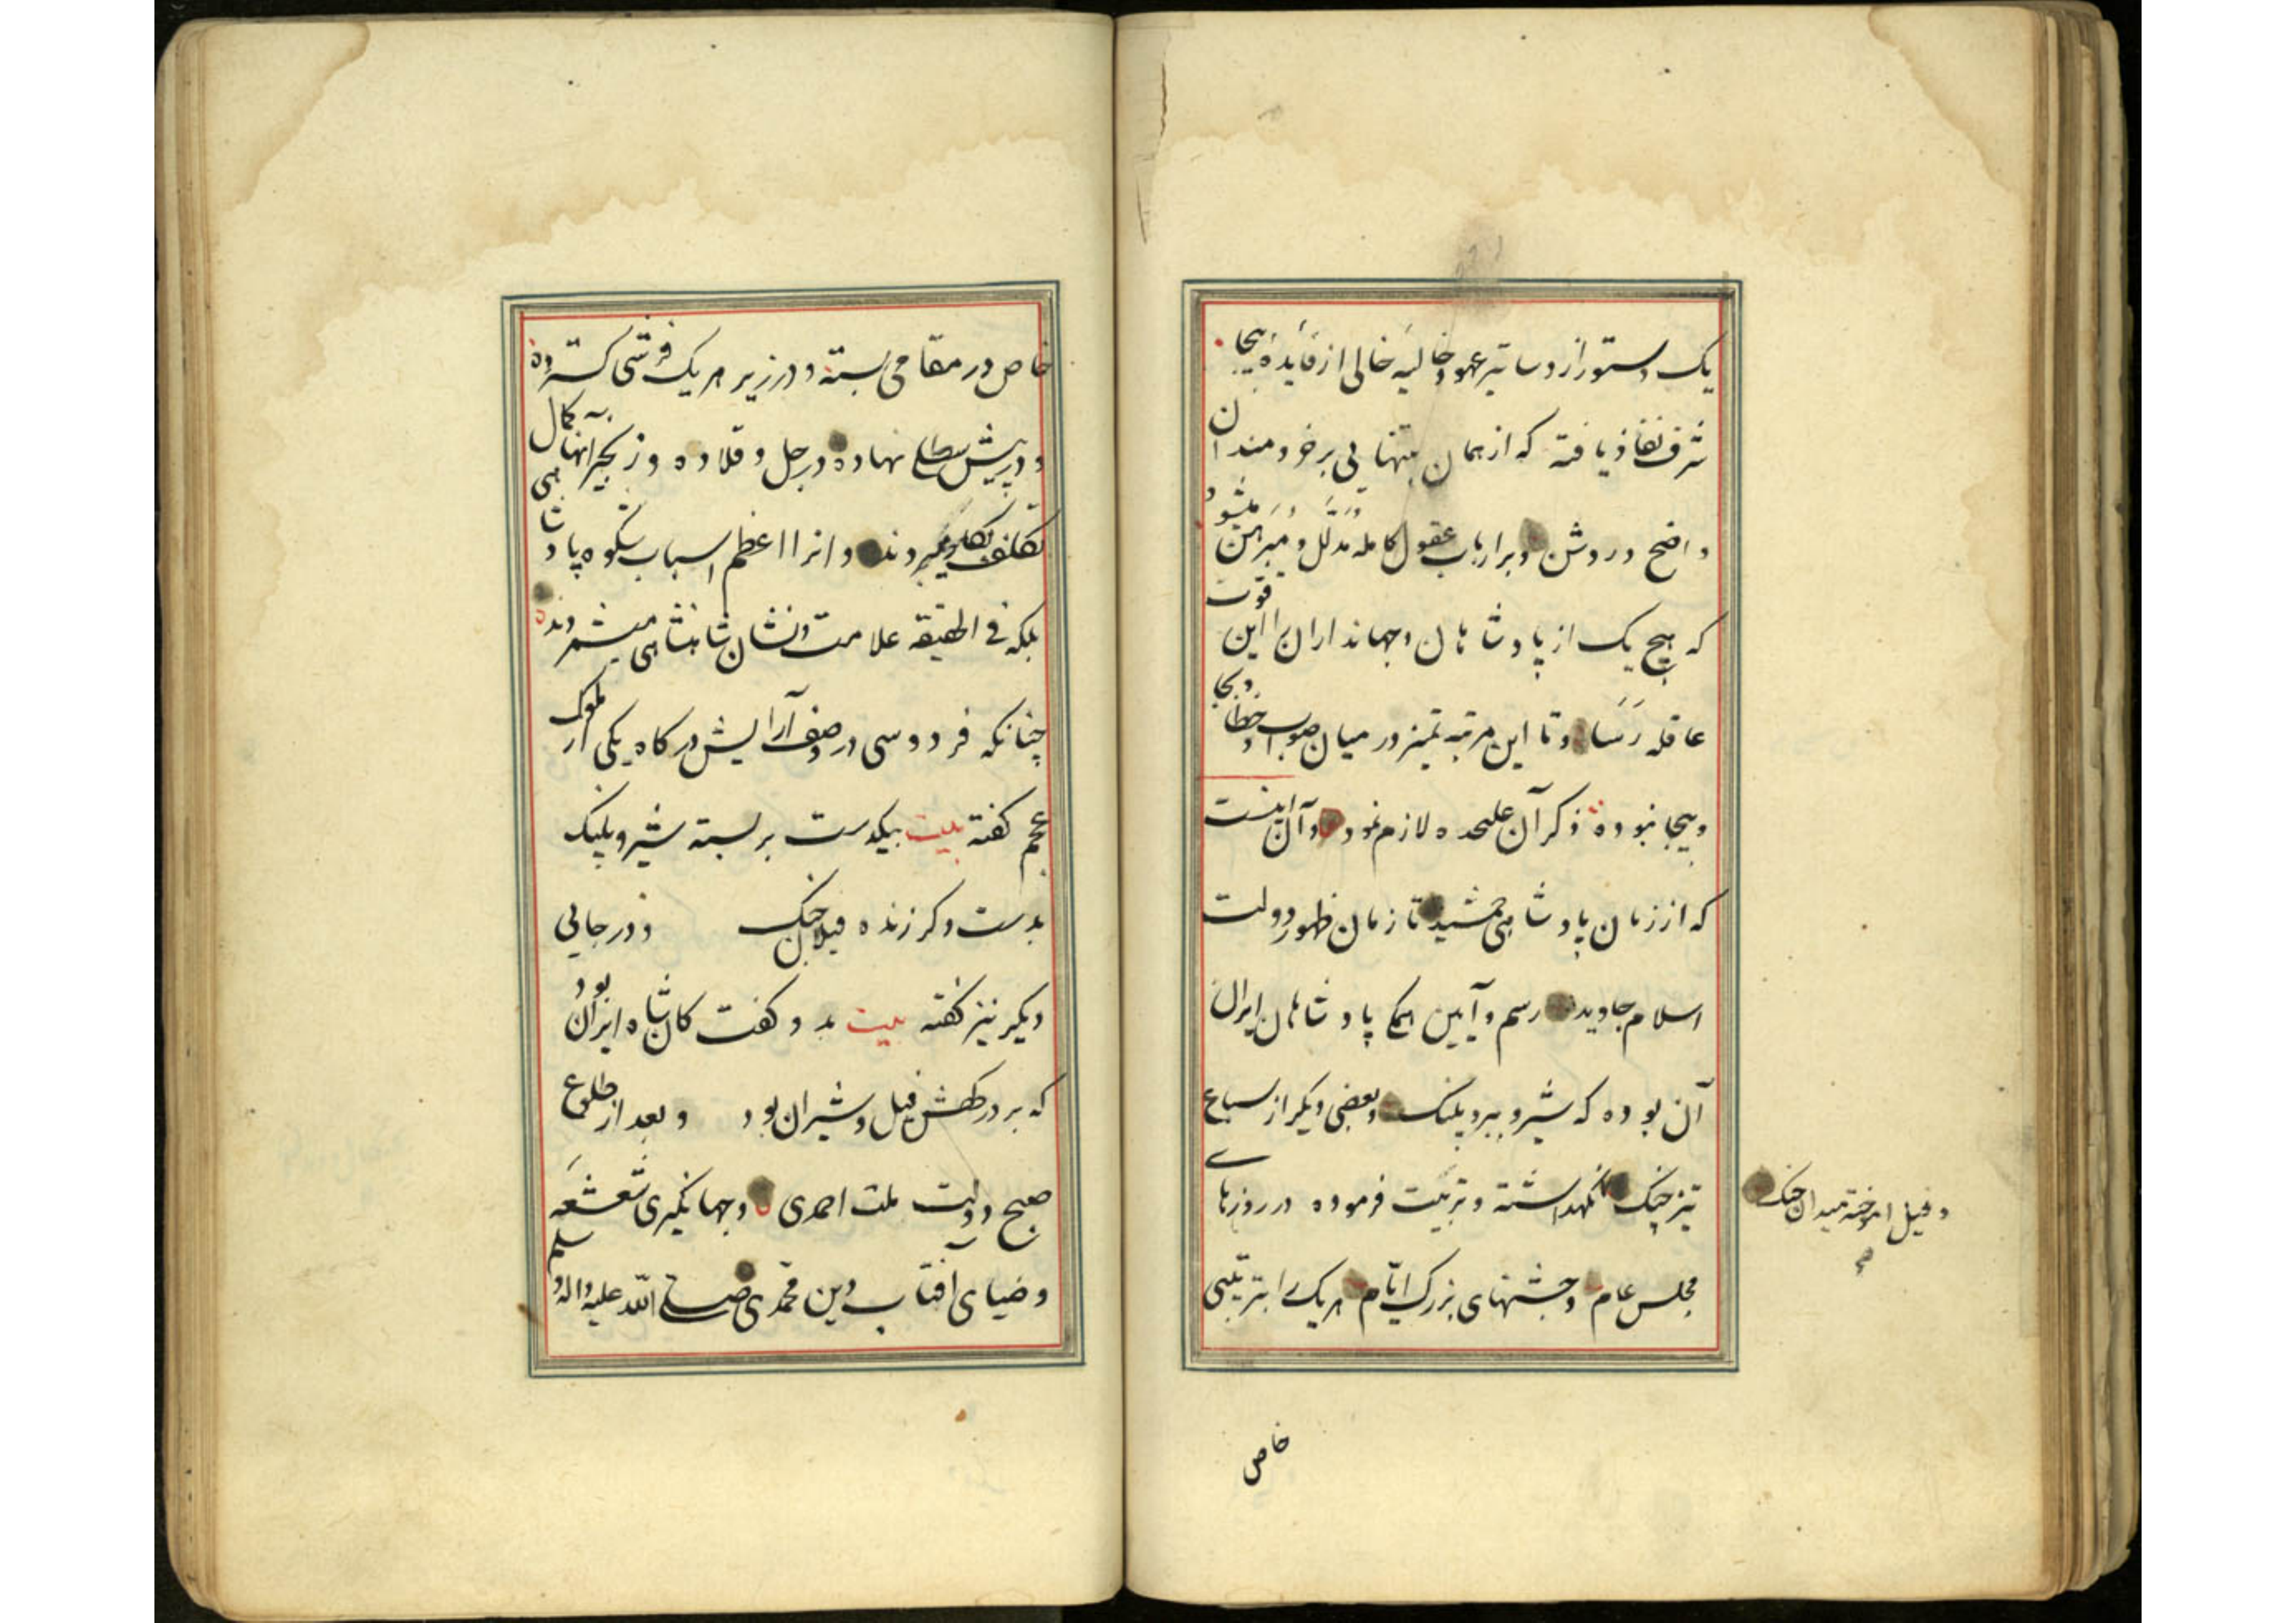 یک دستور از دساتیر عهود خالیه خالی از فایده بیجا
شرف نفاذ یافته که از همان بتنهایی بر خردمندان
واضح و روشن و بر ارباب عقول کامله مدلل و مبرهن میشود
که هیچ یک از پادشاهان و جهانداران را این قوت
عاقله رسا و تا این مرتبه تمیز در میان صواب و خطا و بجا
و بیجا نبوده ذکر آن علیحده لازم نمود و آن اینست
که از زمان پادشاهی جمشید تا زمان ظهور دولت
اسلام جاوید رسم و آیین همگی پادشاهان ایران
آن بوده که شیر و ببر و پلنگ و بعضی دیگر از سباع
تیز چنگ نگهداشته و تربیت فرموده در روزهای
مجلس عام و جشنهای بزرگ ایام هر یک را بترتیبی
و فیل اموخته میدان جنگ
خاص
خاص در مقامی بسته و در زیر هر یک فرشی گسترده
و در پیش نهاده و بر جل و قلاده و زنجیر آنها بکمال
تکلف بکار میبردند و انرا اعظم اسباب شکوه پادشاهی
بلکه فی الحقیقه علامت و نشان شاهنشاهی میشمردند
چنانکه فردوسی در وصف آرایش درگاه یکی از ملوک
عجم گفته بیت بیکدست بر بسته شیر و پلنگ
بدست دگر ژنده فیلان جنگ و در جایی
دیگر نیز گفته بیت بدو گفت کان شاه ایران بود
که بر درگهش فیل و شیران بود و بعد از طلوع
صبح دولت ملت احمدی و جهانگیری شعشعه
و ضیای آفتاب دین محمدی صلی الله علیه و اله و سلم